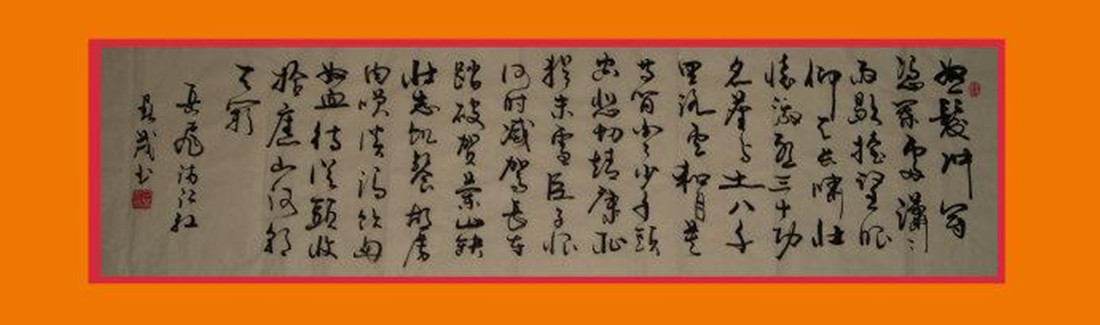 怒髮冲冠
憑闌處瀟々
雨歇擡望眼
仰天長嘯壯
懷激烈三十功
名塵与土八千
里路雲和月莫
等閑白了少年頭
空悲切靖康恥
猶未雪臣子恨
何时滅駕長車
踏破賀蘭山缺
壯志飢餐胡虜
肉笑談渴飲匈
奴血待從頭收
拾舊山河朝
天闕
岳飛滿江紅
书